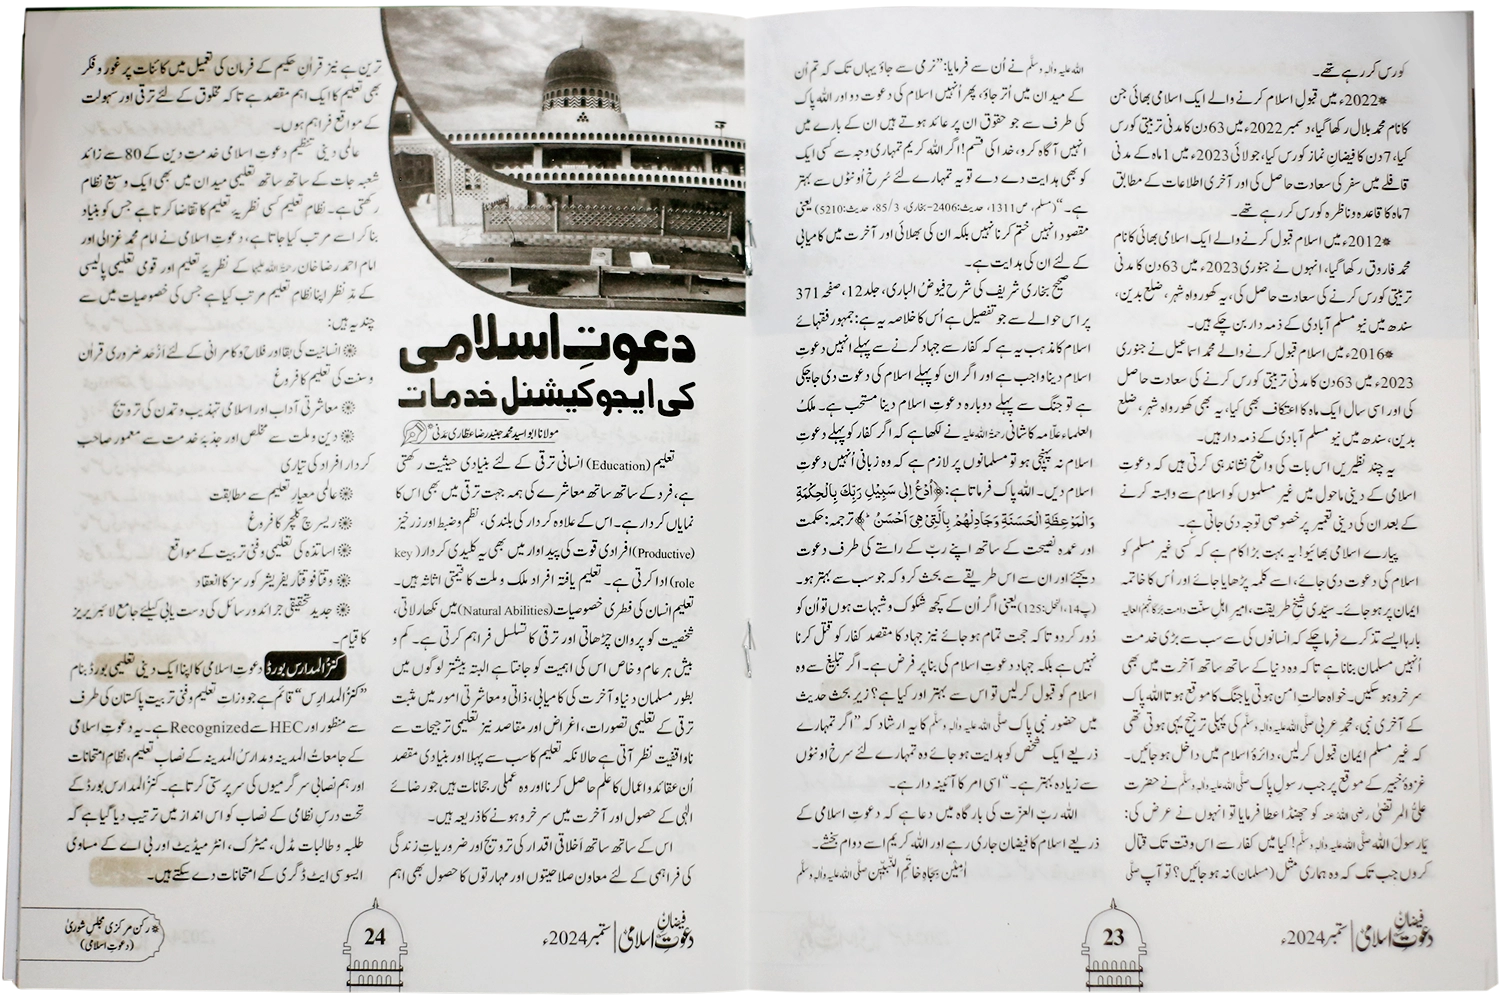 کورس کر رہے تھے۔
❋2022ء میں قبولِ اسلام کرنے والے ایک اسلامی بھائی جن
کا نام محمد بلال رکھا گیا، دسمبر 2022ء میں 63 دن کا مدنی تربیتی کورس
کیا، 7 دن کا فیضانِ نماز کورس کیا، جولائی 2023ء میں 1 ماہ کے مدنی
قافلے میں سفر کی سعادت حاصل کی اور آخری اطلاعات کے مطابق
7 ماہ کا قاعدہ و ناظرہ کورس کر رہے تھے۔
❋2012ء میں اسلام قبول کرنے والے ایک اسلامی بھائی کا نام
محمد فاروق رکھا گیا، انہوں نے جنوری 2023ء میں 63 دن کا مدنی
تربیتی کورس کرنے کی سعادت حاصل کی، یہ کھور واہ شہر، ضلع بدین،
سندھ میں نیو مسلم آبادی کے ذمہ دار بن چکے ہیں۔
❋2016ء میں اسلام قبول کرنے والے محمد اسماعیل نے جنوری
2023ء میں 63 دن کا مدنی تربیتی کورس کرنے کی سعادت حاصل
کی اور اسی سال ایک ماہ کا اعتکاف بھی کیا، یہ بھی کھور واہ شہر، ضلع
بدین، سندھ میں نیو مسلم آبادی کے ذمہ دار ہیں۔
یہ چند نظیریں اس بات کی واضح نشاندہی کرتی ہیں کہ دعوتِ
اسلامی کے دینی ماحول میں غیر مسلموں کو اسلام سے وابستہ کرنے
کے بعد ان کی دینی تعمیر پر خصوصی توجہ دی جاتی ہے۔
پیارے اسلامی بھائیو! یہ بہت بڑا کام ہے کہ کسی غیر مسلم کو
اسلام کی دعوت دی جائے، اسے کلمہ پڑھایا جائے اور اُس کا خاتمہ
ایمان پر ہو جائے۔ سیّدی شیخِ طریقت، امیرِ اہلِ سنّت دامت بَرَکاتہمُ العالیہ
بارہا ایسے تذکرے فرماچکے کہ انسانوں کی سب سے بڑی خدمت
اُنہیں مسلمان بنانا ہے تاکہ وہ دنیا کے ساتھ ساتھ آخرت میں بھی
سرخرو ہو سکیں۔ خواہ حالتِ امن ہوتی یا جنگ کا موقع ہوتا اللہ پاک
کے آخری نبی، محمدِ عربی صلَّی اللہ علیہ واٰلہٖ وسلَّم کی پہلی ترجیح یہی ہوتی تھی
کہ غیر مسلم ایمان قبول کرلیں، دائرۂ اسلام میں داخل ہو جائیں۔
غزوۂ خیبر کے موقع پر جب رسولِ پاک صلَّی اللہ علیہ واٰلہٖ وسلَّم نے حضرت
علیُّ المرتضیٰ رضی اللہ عنہ کو جھنڈا عطا فرمایا تو انہوں نے عرض کی:
یَارسولَ اللہ صلَّی اللہ علیہ واٰلہٖ وسلَّم! کیا میں کفار سے اس وقت تک قتال
کروں جب تک کہ وہ ہماری مثل (مسلمان) نہ ہو جائیں؟ تو آپ صلَّی
اللہ علیہ واٰلہٖ وسلَّم نے اُن سے فرمایا: ”نرمی سے جاؤ یہاں تک کہ تم اُن
کے میدان میں اُتر جاؤ، پھر اُنہیں اسلام کی دعوت دو اور اللہ پاک
کی طرف سے جو حقوق ان پر عائد ہوتے ہیں ان کے بارے میں
انہیں آگاہ کرو، خدا کی قسم! اگر اللہ کریم تمہاری وجہ سے کسی ایک
کو بھی ہدایت دے دے تو یہ تمہارے لئے سُرخ اُونٹوں سے بہتر
ہے۔“ (مسلم، ص1311، حدیث:2406-بخاری، 3/85، حدیث:5210) یعنی
مقصود انہیں ختم کرنا نہیں بلکہ ان کی بھلائی اور آخرت میں کامیابی
کے لئے ان کی ہدایت ہے۔
صحیح بخاری شریف کی شرح فیوضُ الباری، جلد12، صفحہ 371
پر اس حوالے سے جو تفصیل ہے اُس کا خلاصہ یہ ہے: جمہور فقہائے
اسلام کا مذہب یہ ہے کہ کفار سے جہاد کرنے سے پہلے انہیں دعوتِ
اسلام دینا واجب ہے اور اگر ان کو پہلے اسلام کی دعوت دی جاچکی
ہے تو جنگ سے پہلے دوبارہ دعوتِ اسلام دینا مستحب ہے۔ ملکُ
العلماء علّامہ کاشانی رحمۃُ اللہ علیہ نے لکھا ہے کہ اگر کفار کو پہلے دعوتِ
اسلام نہ پہنچی ہو تو مسلمانوں پر لازم ہے کہ وہ زبانی اُنہیں دعوتِ
اسلام دیں۔ اللہ پاک فرماتا ہے: ﴿اُدْعُ اِلٰى سَبِیْلِ رَبِّكَ بِالْحِكْمَةِ
وَالْمَوْعِظَةِ الْحَسَنَةِ وَجَادِلْهُمْ بِالَّتِیْ هِیَ اَحْسَنُؕ ﴾ ترجمہ: حکمت
اور عمدہ نصیحت کے ساتھ اپنے ربّ کے راستے کی طرف دعوت
دیجئے اور ان سے اس طریقے سے بحث کرو کہ جو سب سے بہتر ہو۔
(پ14، النحل:125) یعنی اگر اُن کے کچھ شکوک و شبہات ہوں تو اُن کو
دُور کر دو تاکہ حجت تمام ہو جائے نیز جہاد کا مقصد کفار کو قتل کرنا
نہیں ہے بلکہ جہاد دعوتِ اسلام کی بنا پر فرض ہے۔ اگر تبلیغ سے وہ
اسلام کو قبول کرلیں تو اس سے بہتر اور کیا ہے؟ زیرِ بحث حدیث
میں حضور نبیِ پاک صلَّی اللہ علیہ واٰلہٖ وسلَّم کا یہ ارشاد کہ ”اگر تمہارے
ذریعے ایک شخص کو ہدایت ہو جائے وہ تمہارے لئے سرخ اونٹوں
سے زیادہ بہتر ہے۔“ اسی امر کا آئینہ دار ہے۔
اللہ ربّ العزت کی بارگاہ میں دعا ہے کہ دعوتِ اسلامی کے
ذریعے اسلام کا فیضان جاری رہے اور اللہ کریم اسے دوام بخشے۔
اٰمِیْن بِجَاہِ خَاتَمِ النَّبِیّٖن صلَّی اللہ علیہ واٰلہٖ وسلَّم
فیضانِ دعوتِ اسلامی | ستمبر 2024ء
23
دعوتِ اسلامی
کی ایجوکیشنل خدمات
مولانا ابواسید محمد جنید رضا عطاری مدنی
تعلیم (Education) انسانی ترقی کے لئے بنیادی حیثیت رکھتی
ہے، فرد کے ساتھ ساتھ معاشرے کی ہمہ جہت ترقی میں بھی اس کا
نمایاں کردار ہے۔ اس کے علاوہ کردار کی بلندی، نظم و ضبط اور زرخیز
(Productive) افرادی قوت کی پیداوار میں بھی یہ کلیدی کردار (key
role) ادا کرتی ہے۔ تعلیم یافتہ افراد ملک و ملت کا قیمتی اثاثہ ہیں۔
تعلیم انسان کی فطری خصوصیات (Natural Abilities) میں نکھار لاتی،
شخصیت کو پروان چڑھاتی اور ترقی کا تسلسل فراہم کرتی ہے۔ کم و
بیش ہر عام و خاص اس کی اہمیت کو جانتا ہے البتہ بیشتر لوگوں میں
بطورِ مسلمان دنیا و آخرت کی کامیابی، ذاتی و معاشرتی امور میں مثبت
ترقی کے تعلیمی تصورات، اغراض اور مقاصد نیز تعلیمی ترجیحات سے
ناواقفیت نظر آتی ہے حالانکہ تعلیم کا سب سے پہلا اور بنیادی مقصد
اُن عقائد و اعمال کا علم حاصل کرنا اور وہ عملی رجحانات ہیں جو رضائے
الٰہی کے حصول اور آخرت میں سرخرو ہونے کا ذریعہ ہیں۔
اس کے ساتھ ساتھ اَخلاقی اقدار کی ترویج اور ضروریاتِ زندگی
کی فراہمی کے لئے معاون صلاحیتوں اور مہارتوں کا حصول بھی اہم
ترین ہے نیز قراٰنِ حکیم کے فرمان کی تعمیل میں کائنات پر غور و فکر
بھی تعلیم کا ایک اہم مقصد ہے تاکہ مخلوق کے لئے ترقی اور سہولت
کے مواقع فراہم ہوں۔
عالمی دینی تنظیم دعوتِ اسلامی خدمتِ دین کے 80 سے زائد
شعبہ جات کے ساتھ ساتھ تعلیمی میدان میں بھی ایک وسیع نظام
رکھتی ہے۔ نظامِ تعلیم کسی نظریۂ تعلیم کا تقاضا کرتا ہے جس کو بنیاد
بنا کر اسے مرتب کیا جاتا ہے، دعوتِ اسلامی نے امام محمد غزالی اور
امام احمد رضا خان رحمۃُ اللہ علیہما کے نظریۂ تعلیم اور قومی تعلیمی پالیسی
کے مدِّ نظر اپنا نظامِ تعلیم مرتب کیا ہے جس کی خصوصیات میں سے
چند یہ ہیں:
❋ انسانیت کی بقا اور فلاح و کامرانی کے لئے اَزْحَد ضروری قراٰن
و سنت کی تعلیم کا فروغ
❋ معاشرتی آداب اور اسلامی تہذیب و تمدن کی ترویج
❋ دین و ملت سے مخلص اور جذبۂ خدمت سے معمور صاحبِ
کردار افراد کی تیاری
❋ عالمی معیارِ تعلیم سے مطابقت
❋ ریسرچ کلچر کا فروغ
❋ اساتذہ کی تعلیمی و فنی تربیت کے مواقع
❋ وقتاً فوقتاً ریفریشر کورسز کا انعقاد
❋ جدید تحقیقی جرائد و رسائل کی دستیابی کیلئے جامع لائبریریز
کا قیام۔
کنزُ المدارس بورڈ دعوتِ اسلامی کا اپنا ایک دینی تعلیمی بورڈ بنام
”کنزُ المدارس“ قائم ہے جو وزاتِ تعلیم و فنی تربیت پاکستان کی طرف
سے منظور اور HEC سے Recognized ہے۔ یہ دعوتِ اسلامی
کے جامعاتُ المدینہ و مدارسُ المدینہ کے نصابِ تعلیم، نظامِ امتحانات
اور ہم نصابی سرگرمیوں کی سرپرستی کرتا ہے۔ کنزُ المدارس بورڈ کے
تحت درسِ نظامی کے نصاب کو اس انداز میں ترتیب دیا گیا ہے کہ
طلبہ و طالبات مڈل، میٹرک، انٹرمیڈیٹ اور بی اے کے مساوی
ایسوسی ایٹ ڈگری کے امتحانات دے سکتے ہیں۔
فیضانِ دعوتِ اسلامی | ستمبر 2024ء
24
❋ رکن مرکزی مجلسِ شوریٰ
(دعوتِ اسلامی)